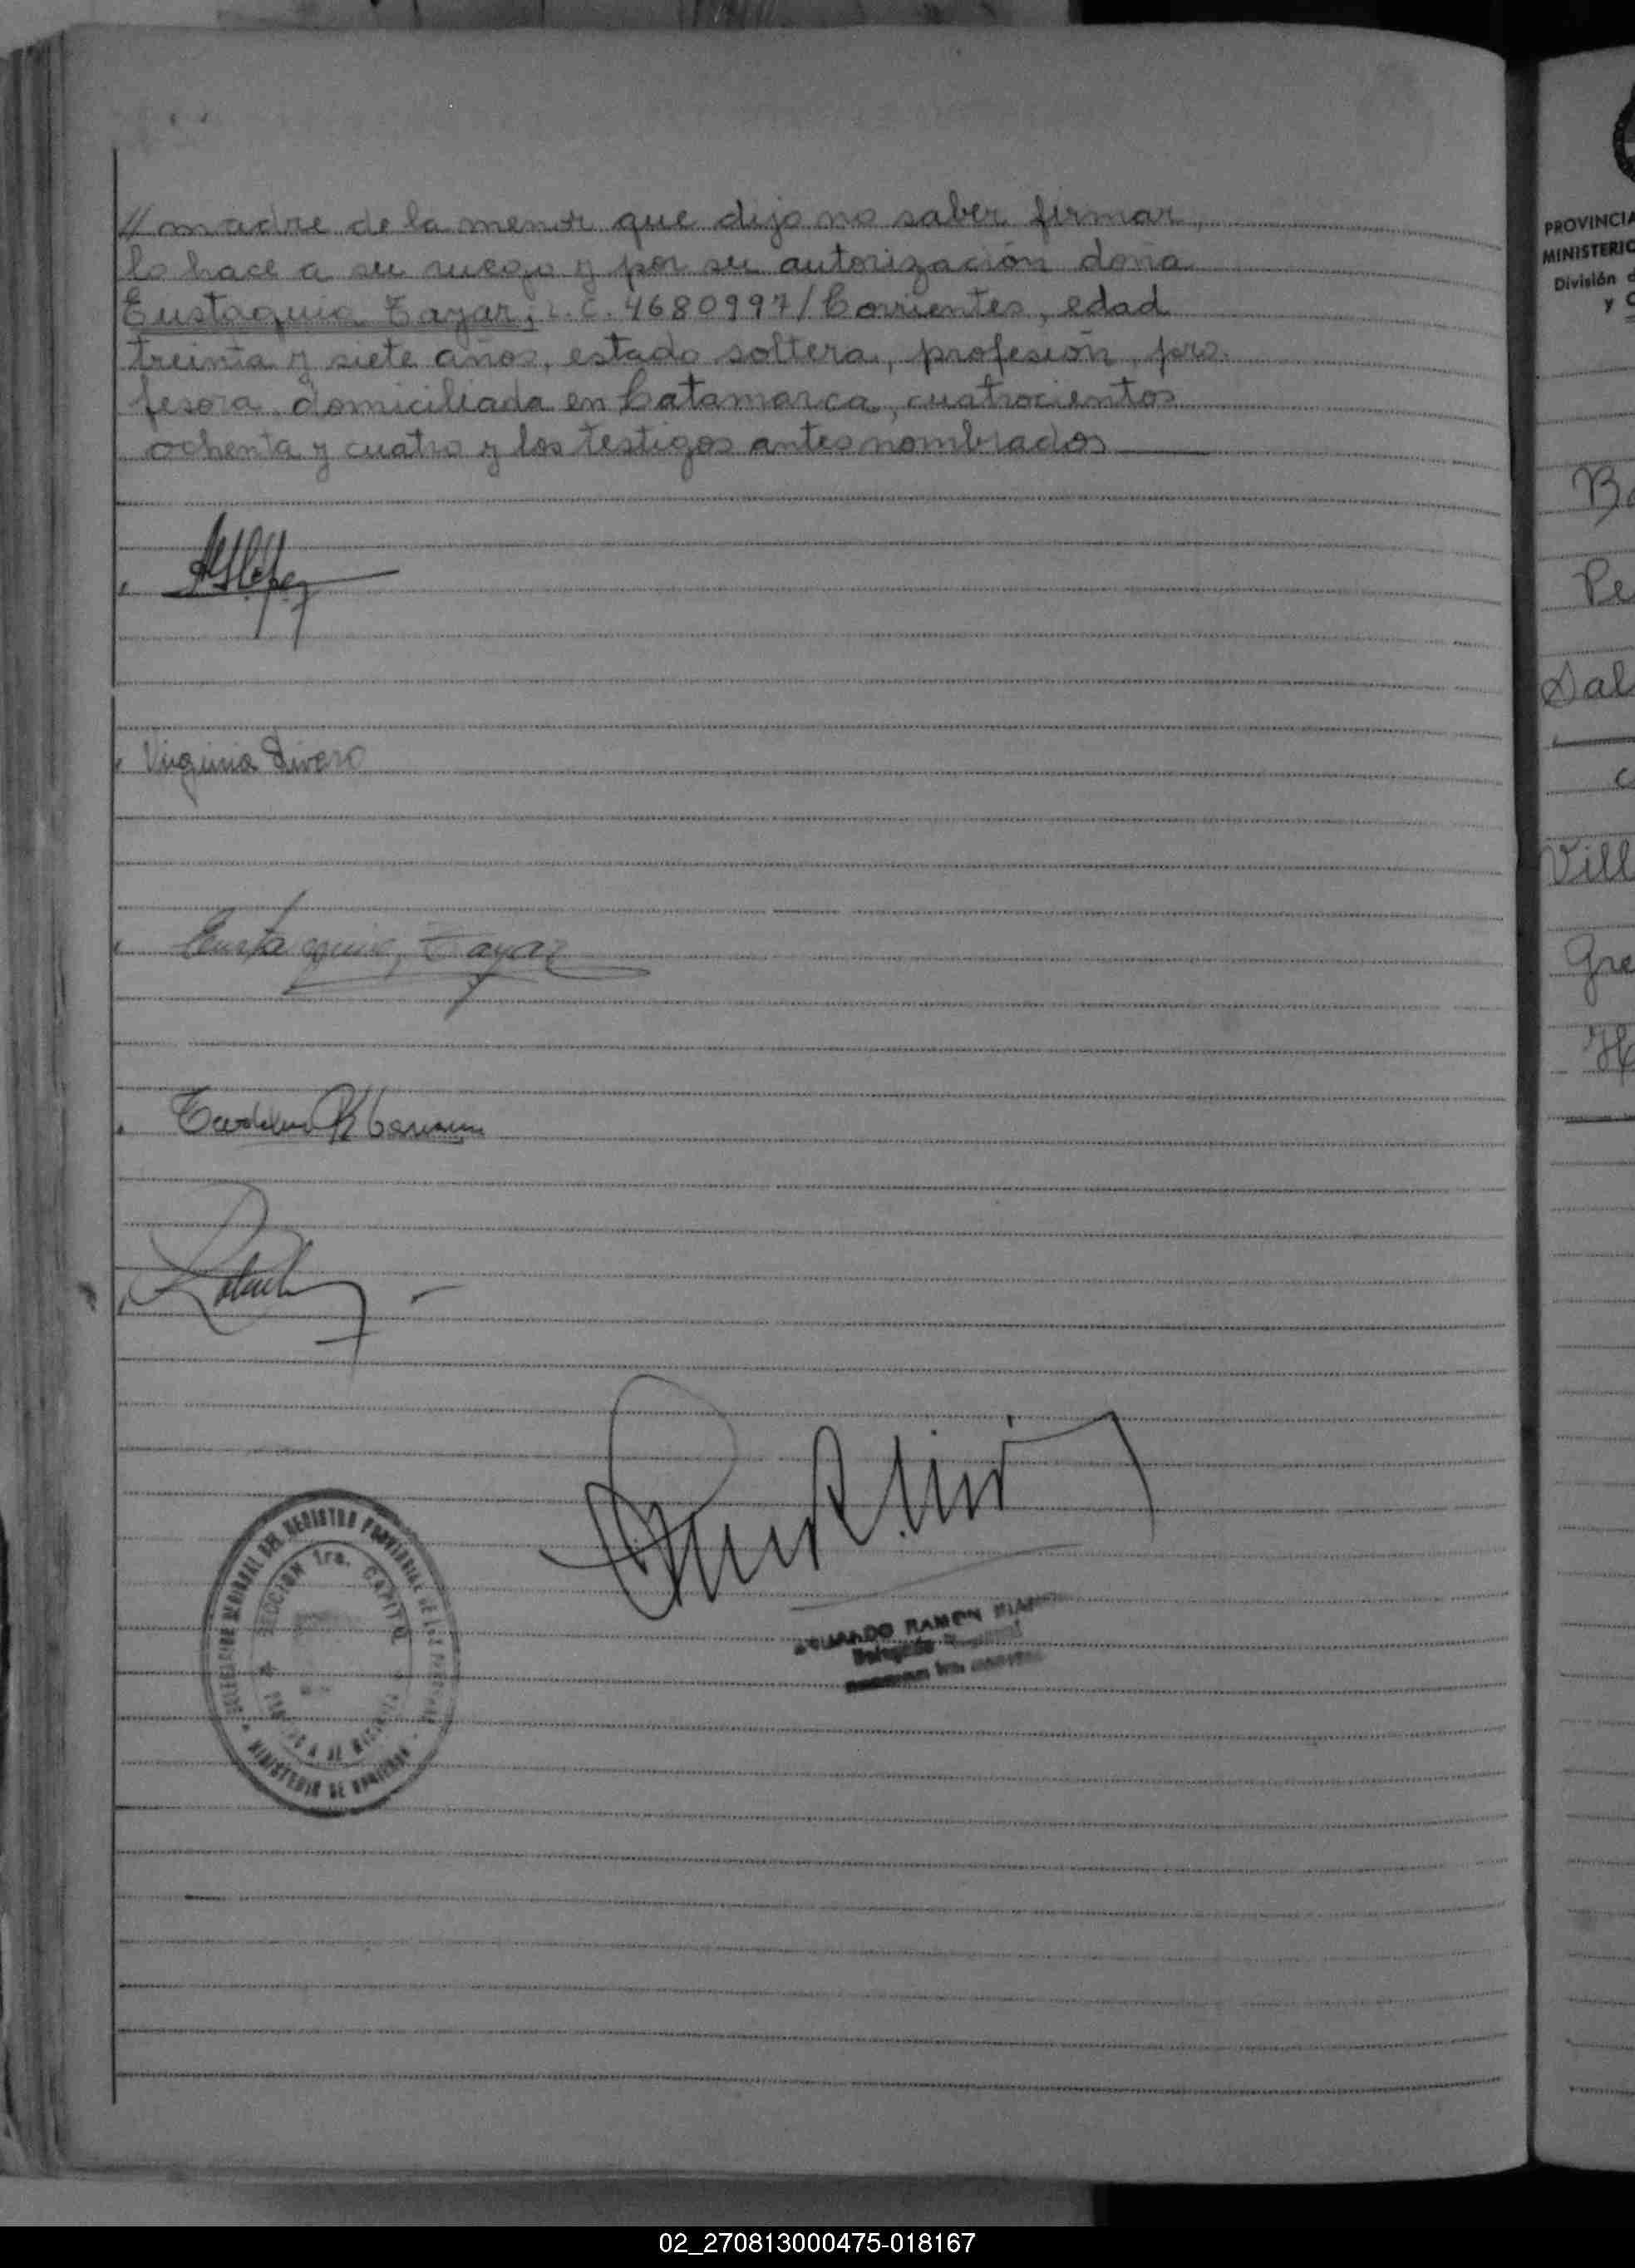 // madre de la menor que dijo no saber firmar,
lo hace a su ruego y por su autorización doña
Eustaquia Tayar, L.C. 4680997/Corrientes, edad
treinta y siete años, estado soltera, profesión, pro
fesora domiciliada en Catamarca, cuatrocientos
ochenta y cuatro y los testigos antes nombrados
Virginia Rivero
Eustaquia Tayar
DEL REGISTRO PROVINCIAL DE LAS PERSONAS
SECCION 1ra. CAPITAL
MINISTERIO DE
RAMON
Delegado
PROVINCIA
MINISTERIO
División d
y
Ba
Pe
Sal
c
Vill
Gre
02_270813000475-018167